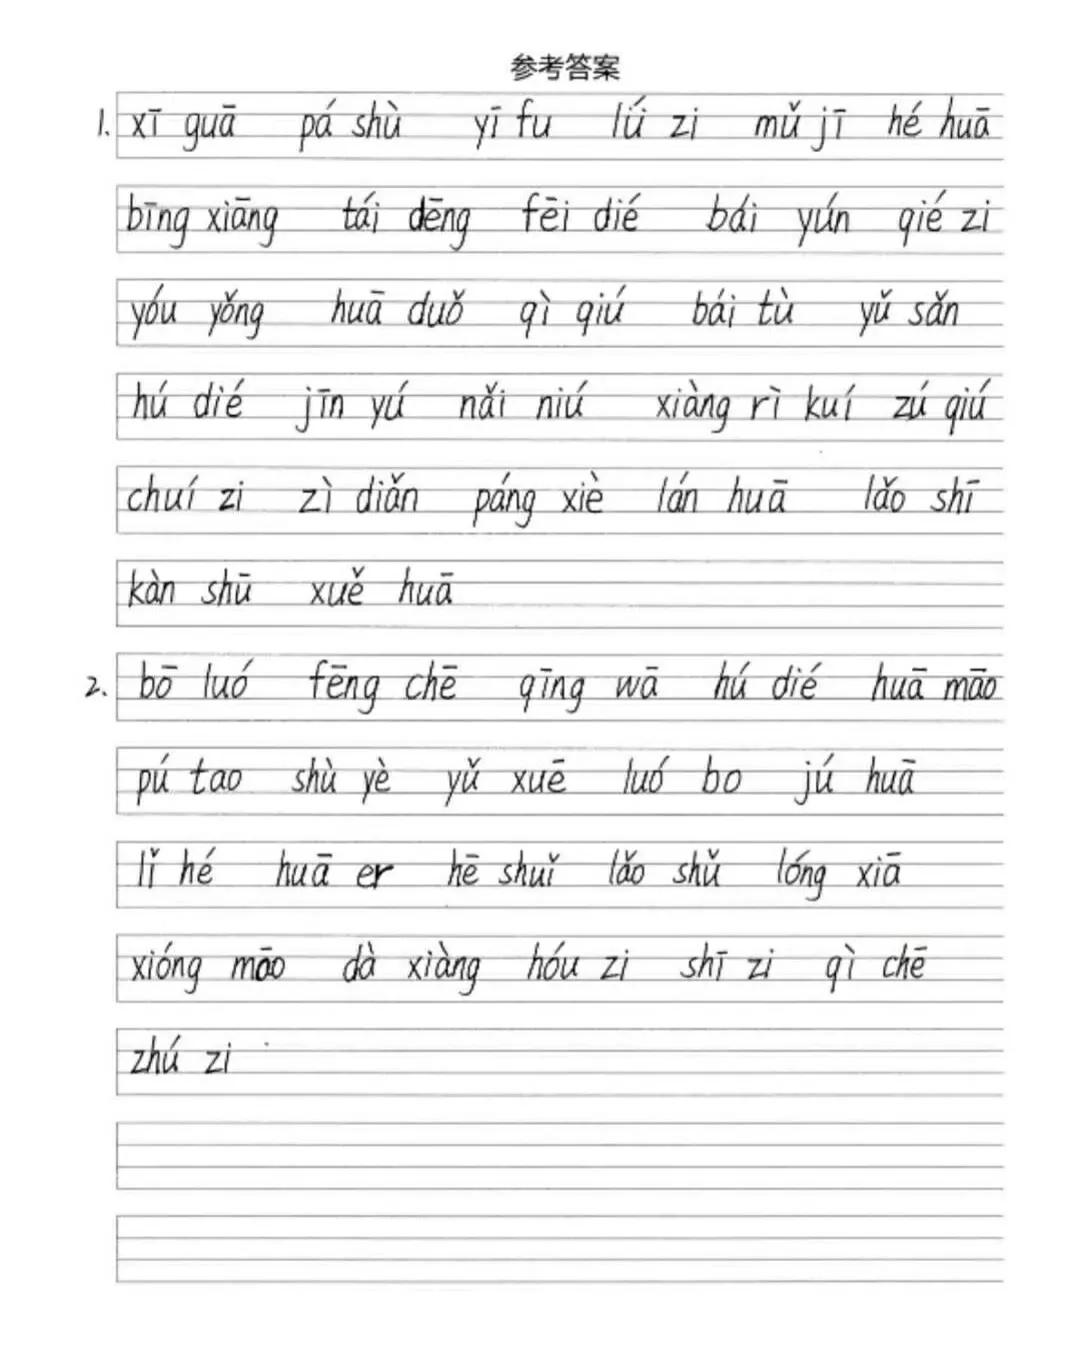 参考答案
1. xī guā pá shù yī fu lǘ zi mǔ jī hé huā
bīng xiāng tái dēng fēi dié bái yún qié zi
yóu yǒng huā duǒ qì qiú bái tù yǔ sǎn
hú dié jīn yú nǎi niú xiàng rì kuí zú qiú
chuí zi zì diǎn páng xiè lán huā lǎo shī
kàn shū xuě huā
2. bō luó fēng chē qīng wā hú dié huā māo
pú tao shù yè yǔ xuē luó bo jú huā
lǐ hé huā er hē shuǐ lǎo shǔ lóng xiā
xióng māo dà xiàng hóu zi shī zi qì chē
zhú zi